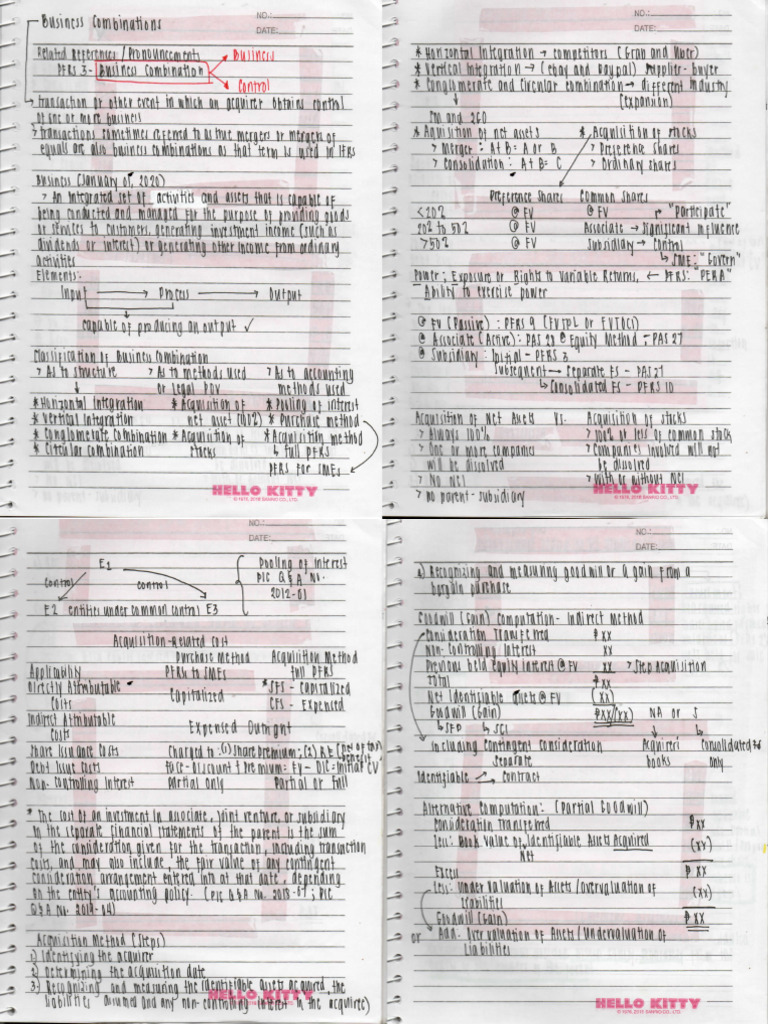 NO.:
DATE:
Business Combinations
Related References / Pronouncement → Business
PFRS 3 - Business Combination → Control
> transaction or other event in which an acquirer obtains control
of one or more business
> transactions sometimes referred to as true mergers or mergers of
equals are also business combinations as that term is used in IFRS
Business (January 01, 2020)
> An integrated set of activities and assets that is capable of
being conducted and managed for the purpose of providing goods
or services to customers, generating investment income (such as
dividends or interest) or generating other income from ordinary
activities
Elements:
Input → Process → Output
capable of producing an output ✓
Classification of Business Combination
> As to structure > As to methods used > As to accounting
or legal POV methods used
* Horizontal Integration * Acquisition of * Pooling of interest
* Vertical Integration net asset (100%) * Purchase method
* Conglomerate Combination * Acquisition of * Acquisition method
* Circular combination stocks ↳ full PFRS
PFRS for SMEs
HELLO KITTY
© 1976, 2018 SANRIO CO., LTD.
NO.:
DATE:
* Horizontal Integration → competitors (Grab and Uber)
* Vertical Integration → (ebay and paypal) supplier - buyer
* Conglomerate and Circular combination → different industry
(expansion)
SM and 2GO
* Aquisition of net assets * Acquisition of stocks
> Merger : A + B = A or B > Preference Shares
> Consolidation : A + B = C > Ordinary shares
Preference Shares Common Shares
< 20% @ FV @ FV "Participate"
20% to 50% @ FV Associate → Significant influence
> 50% @ FV Subsidiary → Control
↳ SME: "Govern"
Power ; Exposure or Rights to Variable Returns, ← PFRS: "PERA"
Ability to exercise power
@ FV (Passive) : PFRS 9 (FVTPL or FVTOCI)
@ Associate (Active) : PAS 28 @ Equity Method - PAS 27
@ Subsidiary : Initial - PFRS 3
Subsequent → Separate FS - PAS 27
↳ Consolidated FS - PFRS 10
Acquisition of Net Assets Vs. Acquisition of stocks
> Always 100% > 100% or less of common stock
> One or more companies > Companies involved will not
will be dissolved be dissolved
> No NCI > With or without NCI
> no parent-subsidiary
HELLO KITTY
© 1976, 2018 SANRIO CO., LTD.
NO.:
DATE:
E1 Pooling of interest
control control PIC Q&A No.
2012-01
E2 entities under common control E3
Acquisition-Related Cost
Purchase Method Acquisition Method
Applicability PFRS to SMEs full PFRS
Directly Attributable Capitalized * SFS - Capitalized
Costs CFS - Expensed
Indirect Attributable Expensed Outright
Costs
Share Issuance Costs Charged to: (1) Share Premium; (2) RE
Debt Issue Costs Face - Discount + Premium = FV - DIC = Initial CV
Non-controlling Interest Partial only Partial or Full
* The cost of an investment in associate, joint venture, or subsidiary
in the separate financial statements of the parent is the sum
of the consideration given for the transaction, including transaction
costs, and may also include, the fair value of any contingent
consideration arrangement entered into at that date, depending
on the entity's accounting policy. (PIC Q&A No. 2018- ; PIC
Q&A No. 2019-04)
Acquisition Method (Steps)
1) Identifying the acquirer
2) Determining the acquisition date
3) Recognizing and measuring the identifiable assets acquired, the
liabilities assumed and any non-controlling interest in the acquiree)
HELLO KITTY
NO.:
DATE:
4) Recognizing and measuring goodwill or a gain from a
bargain purchase
Goodwill (Gain) computation - Indirect method
Consideration Transferred ₱ xx
Non-Controlling Interest xx
Previous held equity interest @ FV xx > Step Acquisition
Total ₱ xx
Net Identifiable Assets @ FV (xx)
Goodwill (Gain) ₱xx/(xx) NA or S
↳ SFP ↳ SCI
including contingent consideration Acquirer's Consolidated FS
Separate books only
Identifiable Contract
Alternative Computation: (Partial Goodwill)
Consideration Transferred ₱ xx
Less: Book Value of Identifiable Assets Acquired (xx)
Net
Excess ₱ xx
Less: Under Valuation of Assets / overvaluation of (xx)
Liabilities
Goodwill (Gain) ₱ xx
or Add: Over valuation of Assets / Undervaluation of
Liabilities
HELLO KITTY
© 1976, 2018 SANRIO CO., LTD.